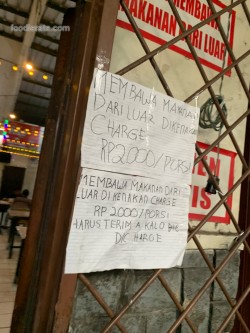 foodierate.com
MEMBAWA
MAKANAN DARI LUAR
MEMBAWA MAKANAN
DARI LUAR DIKENAKAN
CHARGE
RP2.000/PORSI
MEMBAWA MAKANAN DARI
LUAR DI KENAKAN CHARGE
RP 2.000/PORSI
HARUS TERIMA KALO
DI CHARGE